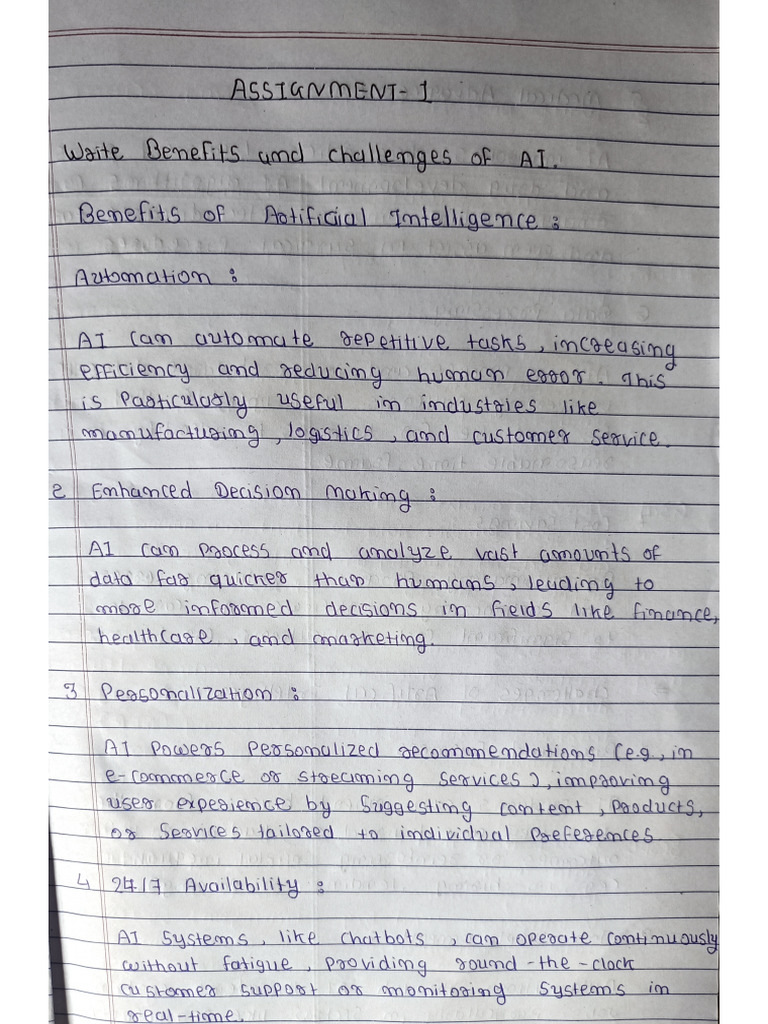 ASSIGNMENT-1
Write Benefits and challenges of AI.
Benefits of Artificial Intelligence :
Automation :
AI can automate repetitive tasks, increasing
efficiency and reducing human error. This
is Particularly useful in industries like
manufacturing, logistics, and customer service.
2 Enhanced Decision Making :
AI can process and analyze vast amounts of
data far quicker than humans, leading to
more informed decisions in fields like finance,
healthcare, and marketing.
3 Personalization :
AI Powers Personalized recommendations (e.g, in
e-commerce or streaming services), improving
user experience by Suggesting content, Products,
or Services tailored to individual Preferences
4 24/7 Availability :
AI Systems, like chatbots, can operate continuously
without fatigue, Providing round-the-clock
customer support or monitoring systems in
real-time.